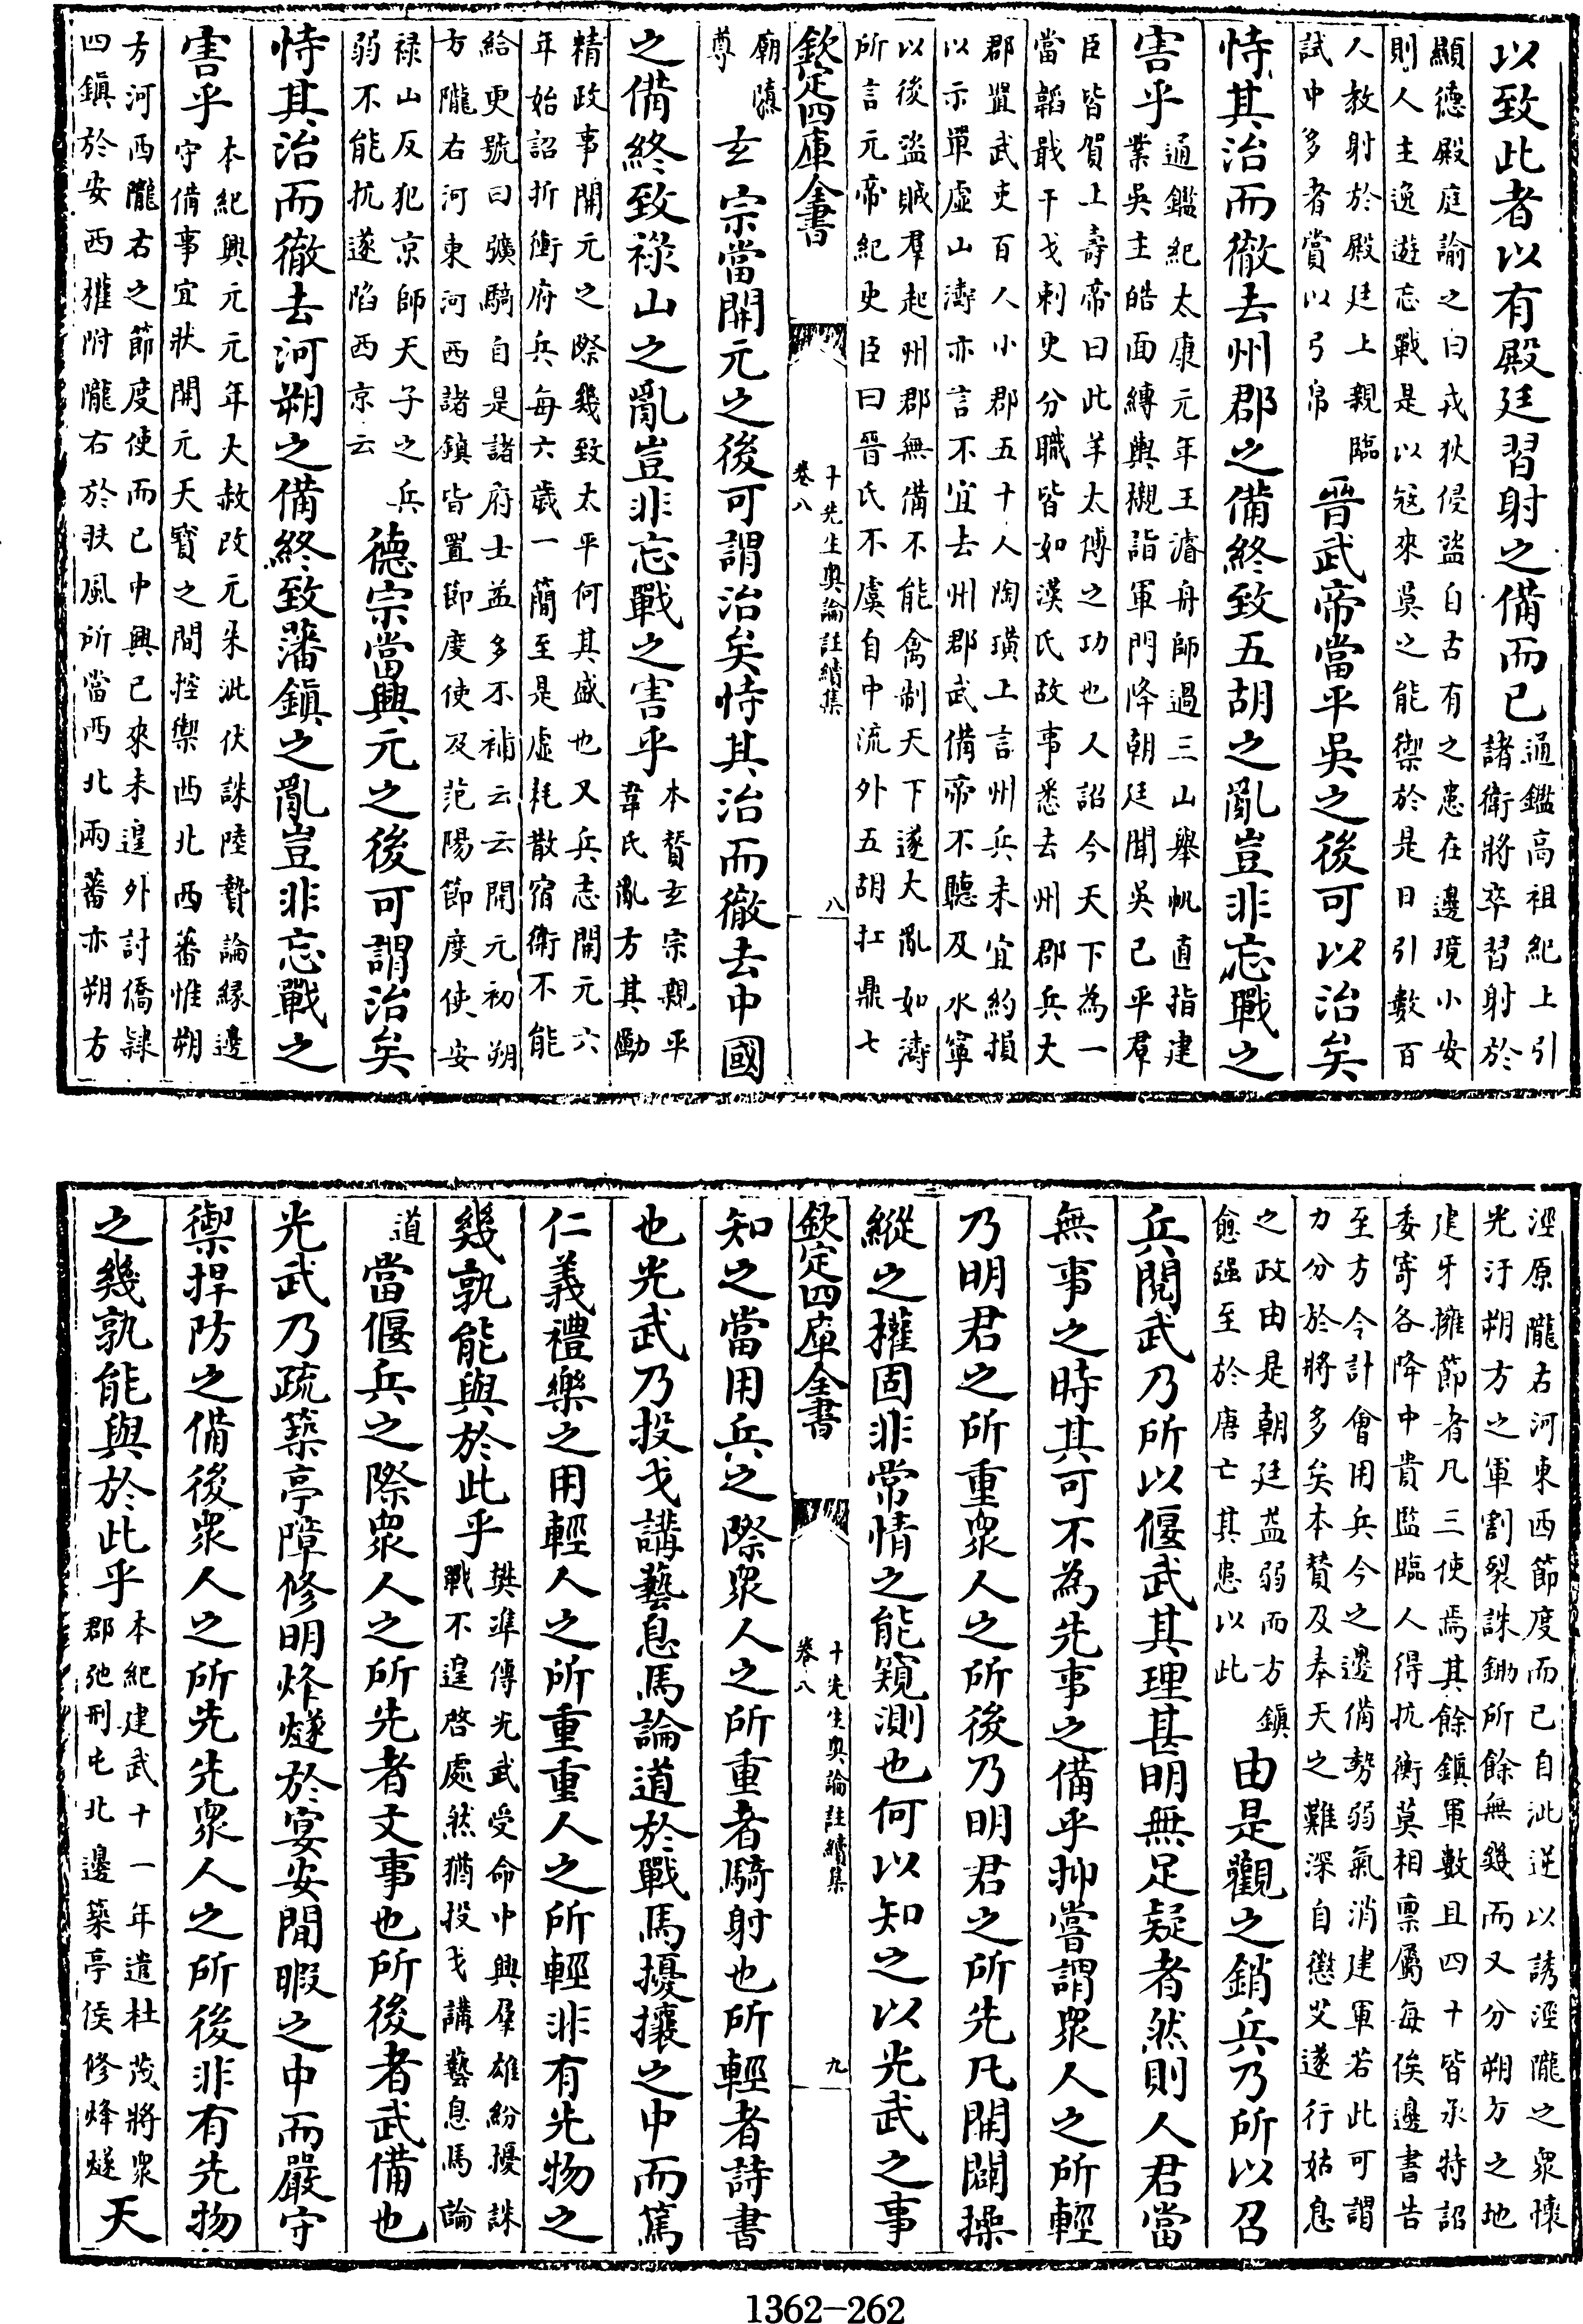 以致此者以有殿廷習射之備而已通鑑高祖紀上引諸衛將卒習射於
顯德殿庭諭之曰戎狄侵盜自古有之患在邊境小安則人主逸遊忘戰是以冦來莫之能禦於是日引數百
人教射於殿廷上親臨試中多者賞以弓帛晉武帝當平吳之後可以治矣
恃其治而徹去州郡之備終致五胡之亂豈非忘戰之
害乎通鑑紀太康元年王濬舟師過三山舉帆直指建業吳主皓面縛輿櫬詣軍門降朝廷聞吳已平羣
臣皆賀上壽帝曰此羊太傅之功也人詔今天下為一當韜戢干戈刺史分職皆如漢氏故事悉去州郡兵大
郡置武吏百人小郡五十人陶璜上言州兵未宜約損以示單虛山濤亦言不宜去州郡武備帝不聽及永寧
以後盜賊羣起州郡無備不能禽制天下遂大亂如濤所言元帝紀史臣曰晉氏不虞自中流外五胡扛鼎七
欽定四庫全書
十先生奥論註續集
卷八
八
廟隳尊玄宗當開元之後可謂治矣恃其治而徹去中國
之備終致祿山之亂豈非忘戰之害乎本賛玄宗親平韋氏亂方其勵
精政事開元之際幾致太平何其盛也又兵志開元六年始詔折衝府兵每六歲一簡至是虛耗散宿衛不能
給更號曰彍騎自是諸府士益多不補云云開元初朔方隴右河東河西諸鎮皆置節度使及范陽節度使安
祿山反犯京師天子之兵弱不能抗遂陷西京云德宗當興元之後可謂治矣
恃其治而徹去河朔之備終致藩鎮之亂豈非忘戰之
害乎本紀興元元年大赦改元朱泚伏誅陸贄論緣邊守備事宜狀開元天寶之間控禦西北西蕃惟朔
方河西隴右之節度使而已中興已來未遑外討僑隸四鎮於安西權附隴右於扶風所當西北兩蕃亦朔方
涇原隴右河東西節度而已自泚逆以誘涇隴之衆懷光汙朔方之軍割裂誅鋤所餘無幾而又分朔方之地
建牙擁節者凡三使焉其餘鎮軍數且四十皆承特詔委寄各降中貴監臨人得抗衡莫相禀屬每俟邊書告
至方今計會用兵今之邊備勢弱氣消建軍若此可謂力分於將多矣本賛及奉天之難深自懲艾遂行姑息
之政由是朝廷益弱而方鎮愈强至於唐亡其患以此由是觀之銷兵乃所以召
兵閱武乃所以偃武其理甚明無足疑者然則人君當
無事之時其可不為先事之備乎抑嘗謂衆人之所輕
乃明君之所重衆人之所後乃明君之所先凡開闢操
縱之權固非常情之能窺測也何以知之以光武之事
欽定四庫全書
十先生奥論註續集
卷八
九
知之當用兵之際衆人之所重者騎射也所輕者詩書
也光武乃投戈講藝息馬論道於戰馬擾攘之中而篤
仁義禮樂之用輕人之所重重人之所輕非有先物之
幾孰能與於此乎樊準傳光武受命中興羣雄紛擾誅戰不遑啓處然猶投戈講藝息馬論
道當偃兵之際衆人之所先者文事也所後者武備也
光武乃疏築亭障修明烽燧於宴安閒暇之中而嚴守
禦捍防之備後衆人之所先先衆人之所後非有先物
之幾孰能與於此乎本紀建武十一年遣杜茂將衆郡弛刑屯北邊築亭侯修烽燧天
1362-262